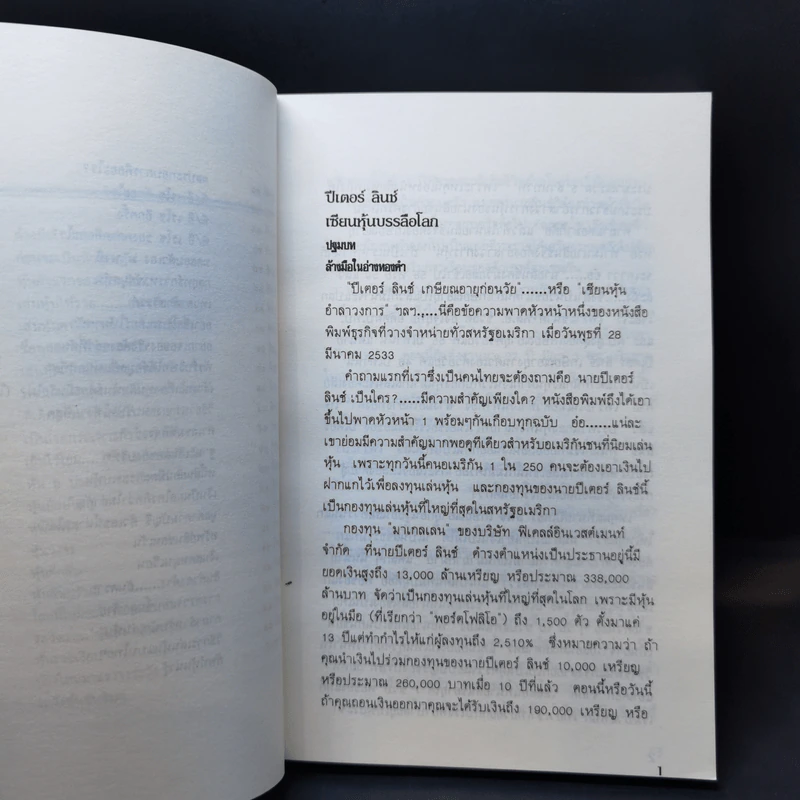 ปีเตอร์ ลินช์
เซียนหุ้นบรรลือโลก
ปฐมบท
ล้างมือในอ่างทองคำ
"ปีเตอร์ ลินช์ เกษียณอายุก่อนวัย"......หรือ "เซียนหุ้น
อำลาวงการ" ฯลฯ.,...นี่คือข้อความพาดหัวหน้าหนึ่งของหนังสือ
พิมพ์ธุรกิจที่วางจำหน่ายทั่วสหรัฐอเมริกา เมื่อวันพุธที่ 28
มีนาคม 2533
คำถามแรกที่เราซึ่งเป็นคนไทยจะต้องถามคือ นายปีเตอร์
ลินช์ เป็นใคร?.....มีความสำคัญเพียงใด? หนังสือพิมพ์ถึงได้เอา
ขึ้นไปพาดหัวหน้า 1 พร้อมๆกันเกือบทุกฉบับ อ๋อ.....แน่ละ
เขาย่อมมีความสำคัญมากพอดูทีเดียวสำหรับอเมริกันชนที่นิยมเล่น
หุ้น เพราะทุกวันนี้คนอเมริกัน 1 ใน 250 คนจะต้องเอาเงินไป
ฝากแกไว้เพื่อลงทุนเล่นหุ้น และกองทุนของนายปีเตอร์ ลินช์นี้
เป็นกองทุนเล่นหุ้นที่ใหญ่ที่สุดในสหรัฐอเมริกา
กองทุน "มาเกลเลน" ของบริษัท ฟิเดลลิ์อินเวสต์เมนท์
จำกัด ที่นายปีเตอร์ ลินช์ ดำรงตำแหน่งเป็นประธานอยู่นี้มี
ยอดเงินสูงถึง 13,000 ล้านเหรียญ หรือประมาณ 338,000
ล้านบาท จัดว่าเป็นกองทุนเล่นหุ้นที่ใหญ่ที่สุดในโลก เพราะมีหุ้น
อยู่ในมือ (ที่เรียกว่า "พอร์ตโฟลิโอ") ถึง 1,500 ตัว ตั้งมาแค่
13 ปีแต่ทำกำไรให้แก่ผู้ลงทุนถึง 2,510% ซึ่งหมายความว่า ถ้า
คุณนำเงินไปร่วมกองทุนของนายปีเตอร์ ลินช์ 10,000 เหรียญ
หรือประมาณ 260,000 บาทเมื่อ 10 ปีที่แล้ว ตอนนี้หรือวันนี้
ถ้าคุณถอนเงินออกมาคุณจะได้รับเงินถึง 190,000 เหรียญ หรือ
1